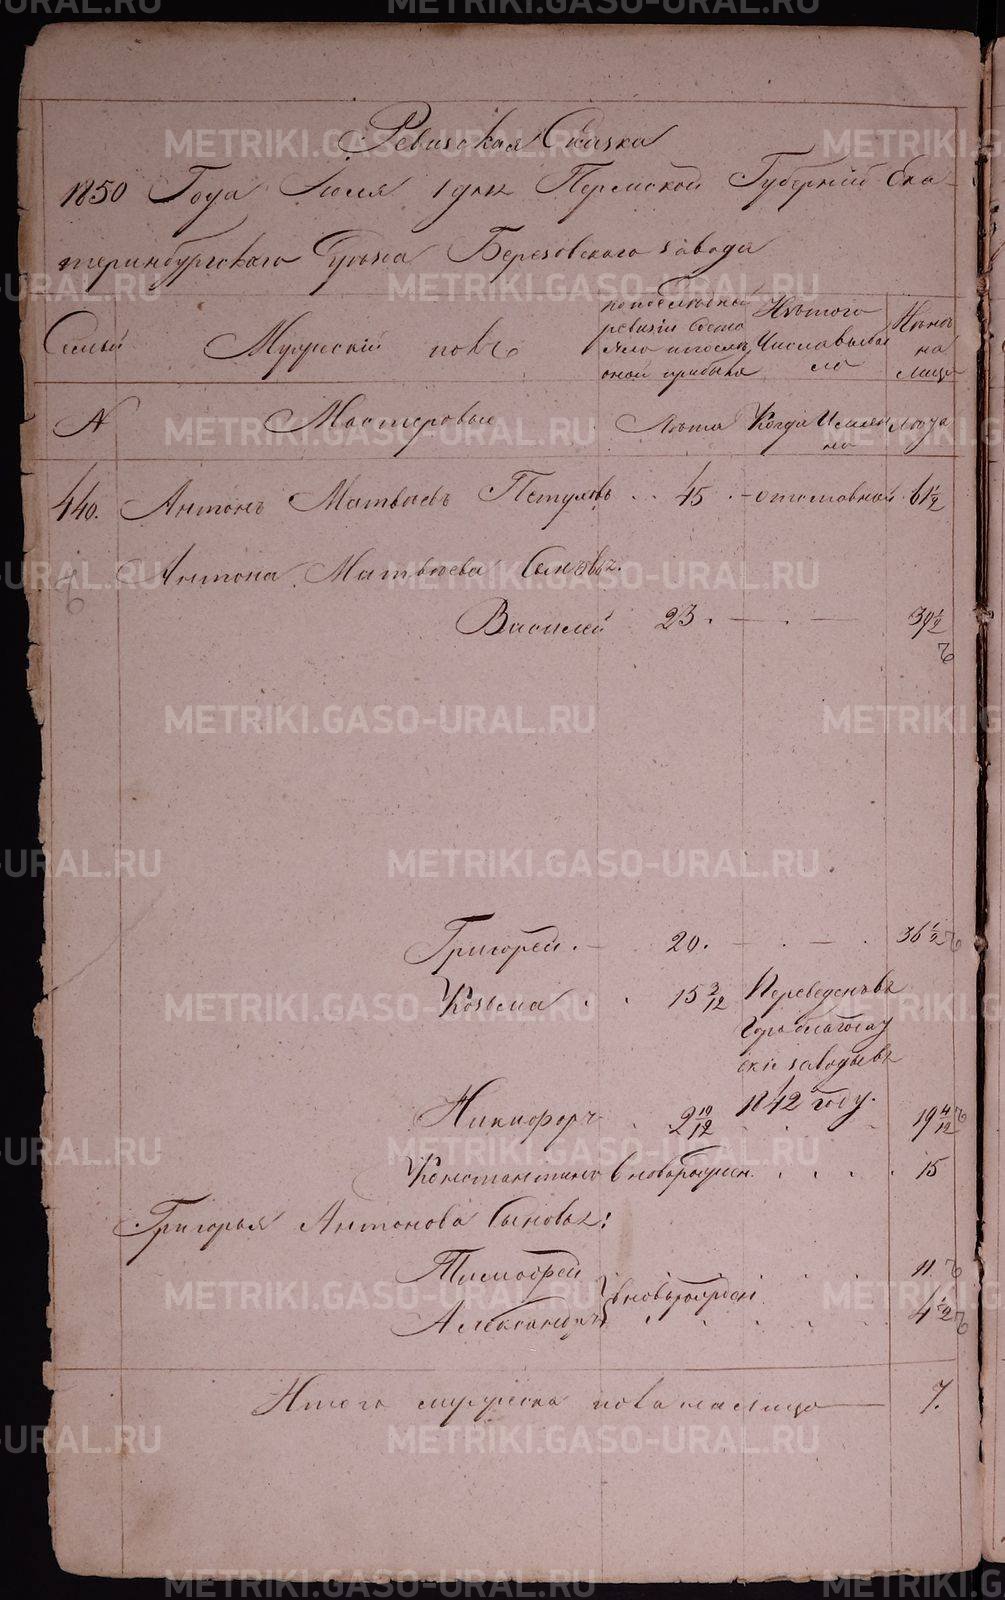 Ревизская Сказка
1850 Года Июля 1 дня Пермской Губернии Ека-
теринбургскаго Уезда Березовского завода
Семьи
Мужеский полъ
по последней
ревизии состо
яло и после
оной прибыло
Изъ того
Числа выбы
ло
Ныне
на
лицо
№
Мастеровые
Лета
Когда Именно
Лета
440. Антонъ Матвеевъ Петуховъ .. 45 . - отставной . 61 1/2
Антона Матвеева Сыновья.
Василей 23. — . — 39 1/2
Григорей. — 20. — . — . 36 1/2
Козьма . . 15 3/12 Переведенъ въ
Гороблагодат
ские заводы въ
1842 году.
Никифоръ . 2 10/12 . . . 19 4/12
Констактинъ вновьрожден. . . . . 15
Григорья Антонова Сыновья:
Тимофей 11
вновьрожден
Александръ 4 1/2
Итого мужеска пола налицо — 7.
METRIKI.GASO-URAL.RU